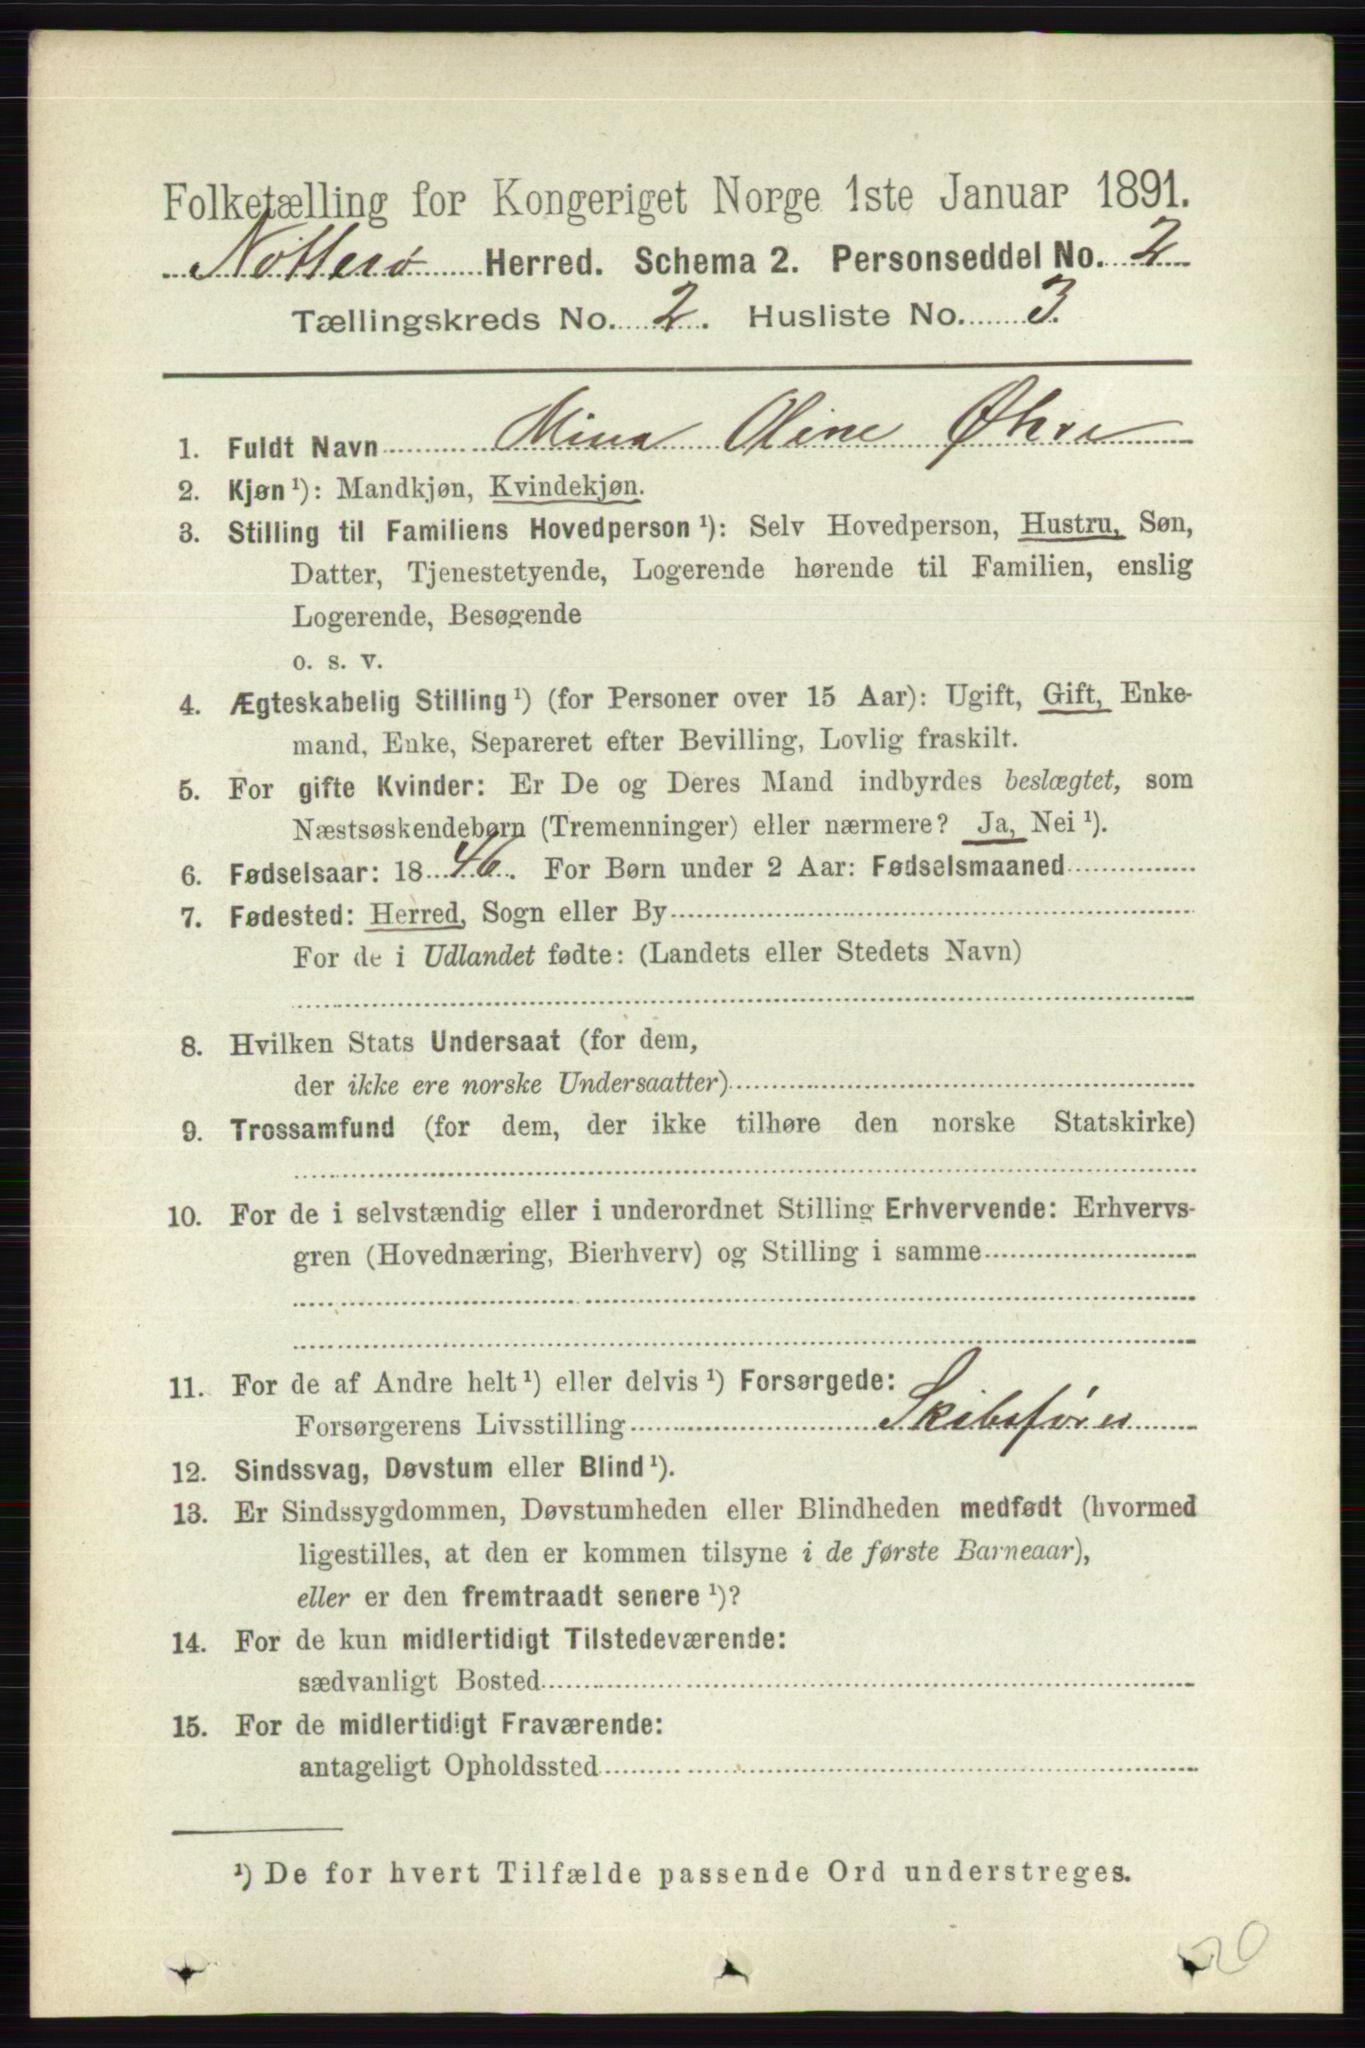 Folketælling for Kongeriget Norge 1ste Januar 1891.
Nøtterø Herred. Schema 2. Personseddel No. 2
Tællingskreds No. 2. Husliste No. 3.
1. Fuldt Navn Mina Oline Øhre
2. Kjøn ¹): Mandkjøn, Kvindekjøn.
3. Stilling til Familiens Hovedperson ¹): Selv Hovedperson, Hustru, Søn,
Datter, Tjenestetyende, Logerende hørende til Familien, enslig
Logerende, Besøgende
o. s. v.
4. Ægteskabelig Stilling ¹) (for Personer over 15 Aar): Ugift, Gift, Enke-
mand, Enke, Separeret efter Bevilling, Lovlig fraskilt.
5. For gifte Kvinder: Er De og Deres Mand indbyrdes beslægtet, som
Næstsøskendebørn (Tremenninger) eller nærmere? Ja, Nei ¹).
6. Fødselsaar: 1846. For Børn under 2 Aar: Fødselsmaaned
7. Fødested: Herred, Sogn eller By
For de i Udlandet fødte: (Landets eller Stedets Navn)
8. Hvilken Stats Undersaat (for dem,
der ikke ere norske Undersaatter)
9. Trossamfund (for dem, der ikke tilhøre den norske Statskirke)
10. For de i selvstændig eller i underordnet Stilling Erhvervende: Erhvervs-
gren (Hovednæring, Bierhverv) og Stilling i samme
11. For de af Andre helt ¹) eller delvis ¹) Forsørgede:
Forsørgerens Livsstilling Skibsfører
12. Sindssvag, Døvstum eller Blind ¹).
13. Er Sindssygdommen, Døvstumheden eller Blindheden medfødt (hvormed
ligestilles, at den er kommen tilsyne i de første Barneaar),
eller er den fremtraadt senere ¹)?
14. For de kun midlertidigt Tilstedeværende:
sædvanligt Bosted
15. For de midlertidigt Fraværende:
antageligt Opholdssted
¹) De for hvert Tilfælde passende Ord understreges.
20